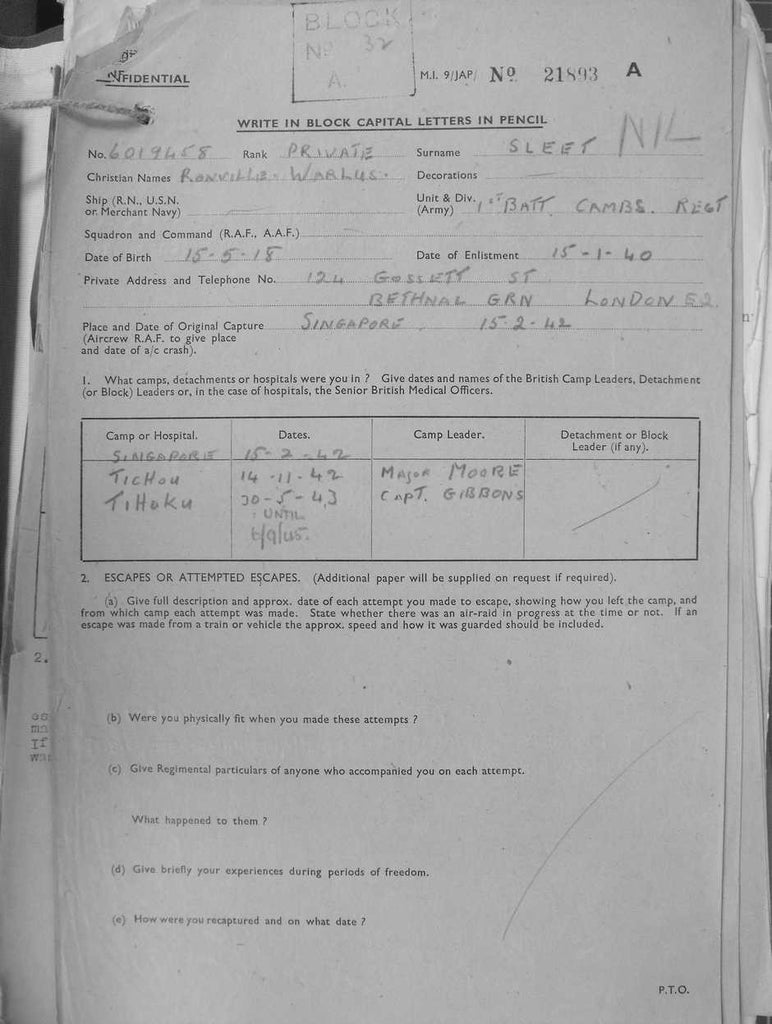 BLOCK
Nº 32
A.
NFIDENTIAL
M.I. 9/JAP/ Nº 21893 A
WRITE IN BLOCK CAPITAL LETTERS IN PENCIL
NIL
No. 6019458 Rank PRIVATE Surname SLEET
Christian Names RONVILLE. WARLUS. Decorations
Ship (R.N., U.S.N. or Merchant Navy) Unit & Div. (Army) 1ST BATT. CAMBS. REGT
Squadron and Command (R.A.F., A.A.F.)
Date of Birth 15-5-18 Date of Enlistment 15-1-40
Private Address and Telephone No. 124 GOSSETT ST
BETHNAL GRN LONDON E2.
Place and Date of Original Capture SINGAPORE, 15-2-42
(Aircrew R.A.F. to give place
and date of a/c crash).
1. What camps, detachments or hospitals were you in ? Give dates and names of the British Camp Leaders, Detachment
(or Block) Leaders or, in the case of hospitals, the Senior British Medical Officers.
Camp or Hospital. Dates. Camp Leader. Detachment or Block
Leader (if any).
SINGAPORE 15-2-42
TICHOU 14-11-42 MAJOR MOORE
TIHOKU 30-5-43 CAPT. GIBBONS
: UNTIL
6/9/45.
2. ESCAPES OR ATTEMPTED ESCAPES. (Additional paper will be supplied on request if required).
(a) Give full description and approx. date of each attempt you made to escape, showing how you left the camp, and
from which camp each attempt was made. State whether there was an air-raid in progress at the time or not. If an
escape was made from a train or vehicle the approx. speed and how it was guarded should be included.
2.
(b) Were you physically fit when you made these attempts ?
If
(c) Give Regimental particulars of anyone who accompanied you on each attempt.
What happened to them ?
(d) Give briefly your experiences during periods of freedom.
(e) How were you recaptured and on what date ?
P.T.O.